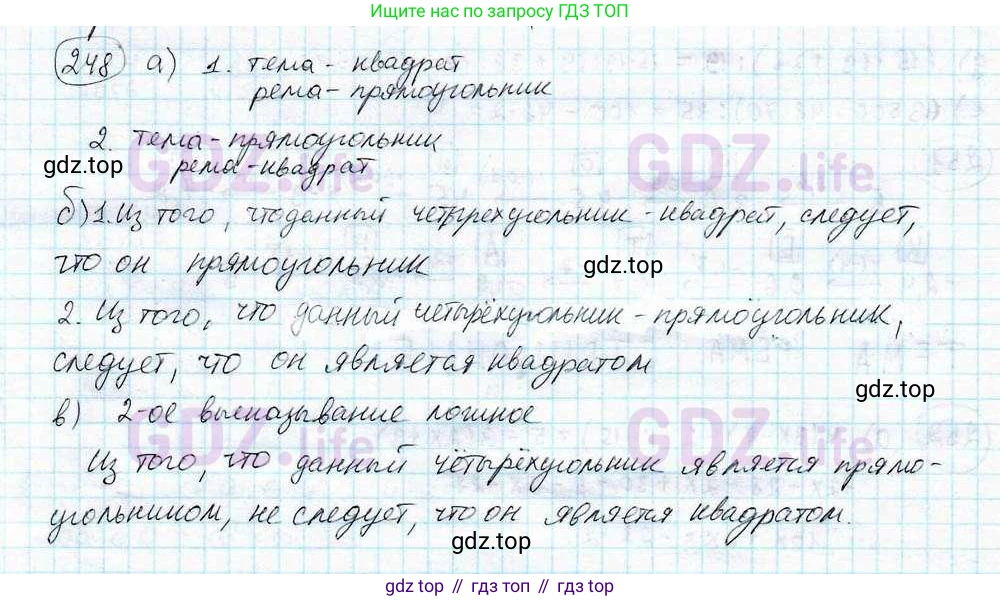 Ищите ответ по запросу ГДЗ ТОП
248 а) 1. тема - квадрат
рема - прямоугольник
2. тема - прямоугольник
gdz.top рема - квадрат
GDZ.life GDZ.life
б) 1. Из того, что данный четырехугольник - квадрат, следует,
что он прямоугольник gdz.top
2. Из того, что данный четырёхугольник - прямоугольник,
следует, что он является квадратом
gdz.top
в) 2-ое высказывание ложное
GDZ.life GDZ.life
Из того, что данный четырёхугольник является прямо-
угольником, не следует, что он является квадратом.
gdz.top
gdz top // гдз топ // gdz.top